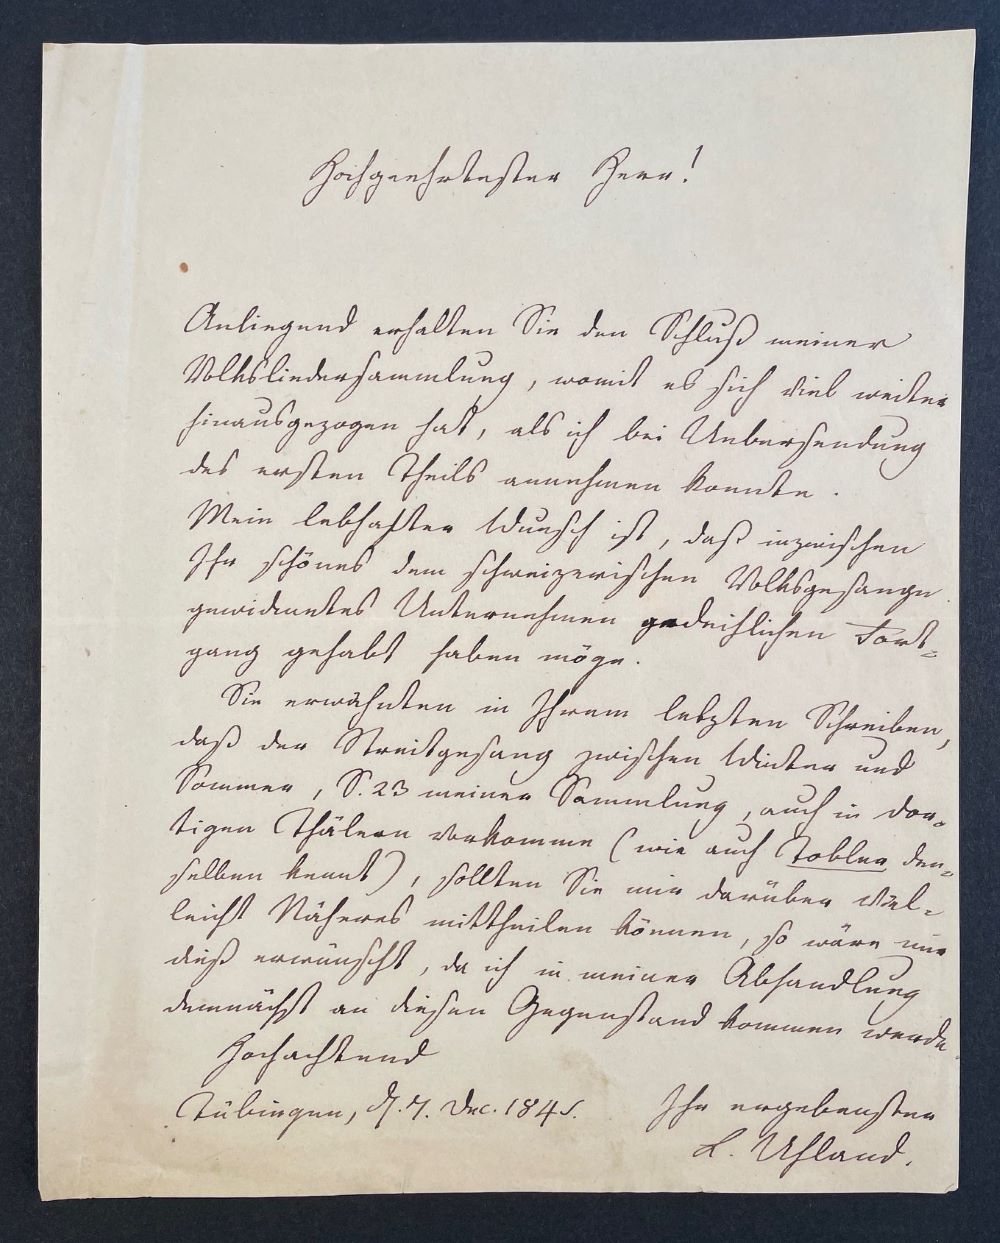 Hochgeehrtester Herr!
Anliegend erhalten Sie den Schluß meiner
Volksliedersammlung, womit es sich viel weiter
hinausgezogen hat, als ich bei Uebersendung
des ersten Theils annehmen konnte.
Mein lebhafter Wunsch ist, daß inzwischen
Ihr schönes dem schweizerischen Volksgesange
gewidmetes Unternehmen gedeihlichen Fort-
gang gehabt haben möge.
Sie erwähnten in Ihrem letzten Schreiben,
daß der Streitgesang zwischen Winter und
Sommer, S. 23 meiner Sammlung, auch in dor-
tigen Thälern vorkomme (wie auch Tobler den-
selben kennt), sollten Sie mir darüber viel-
leicht Näheres mittheilen können, so wäre mir
dieß erwünscht, da ich in meiner Abhandlung
demnächst an diesen Gegenstand kommen werde.
Hochachtend
Tübingen, d. 7. Dec. 1845. Ihr ergebenster
L. Uhland.